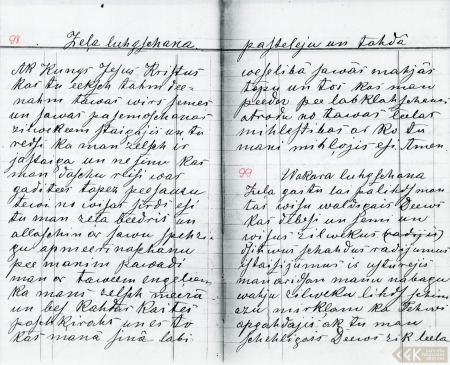 98. Zeļa luhgschana.
Ak Kungs Jesus Kristus
kas tu eeksch tahm dee=
nahm tawas wirs semes
un sawas pasemoschanas
zilwekeem staigajis un tu
redsi ka man zelsch ir
jastaiga un nesinu kas
man daschu reisi war
gaditees tapez peesauzu
tewi no wisas sirds esi
tu man zeļa beedris un
allaschin ar sawu spehzi=
gu apmeerinaschanu
pee manim pawadi
man ar taweem engeleem
ka mans zelsch meera
un bes kahdas kaites
un es to
kas mana sinā labi
pasteleju un tahdā
weselibā sawās mahjās
topu un tos kas man
peeder pee labklahschanas
atrodu no tawas leelas
mihlestibas ar ko tu
mani mihlojis esi. Amen.
99 Wakara luhgschana
Zeļa gaitu lai palihds man
tas wisu waldigais Deews
kas debesi un semi un
wisus zilwekus (radijis)
schahdus radijumus
istaisijumus ir usturejis
man arid̦an manu nabagu
wahju zilweku lihds schim
azu mirklam ka tehws
apgahdajis ak tu man
schehligais Deews zik leela